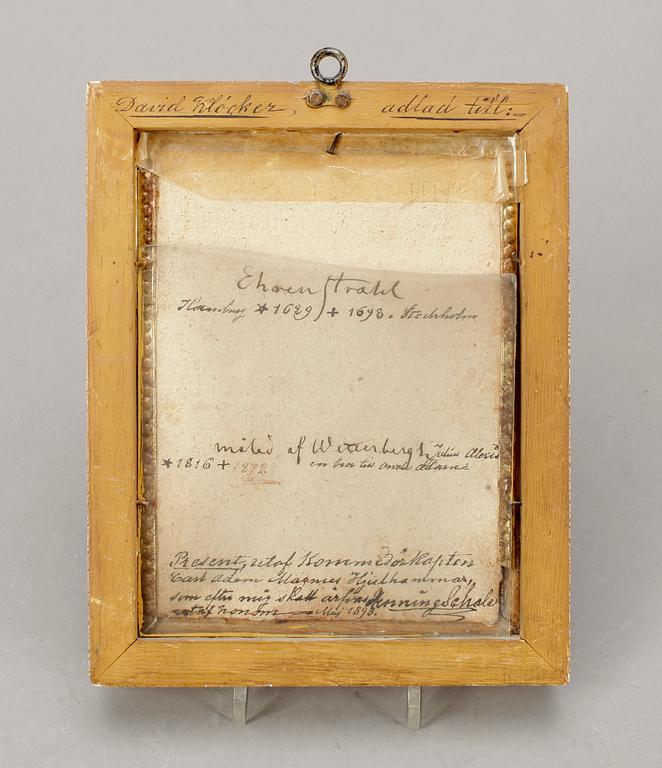 David Klöcker, adlad till:
Ehrenstrahl
Hamburg * 1629 + 1698. Stockholm
målad af Wetterbergh, Julius Alexis
* 1816 + 1872
en bror till
Present, utaf Kommedörkapten
Carl Adam Magnus Hjelhammar,
som efter mig skall Henning Schale
utaf honom Maj 1893.